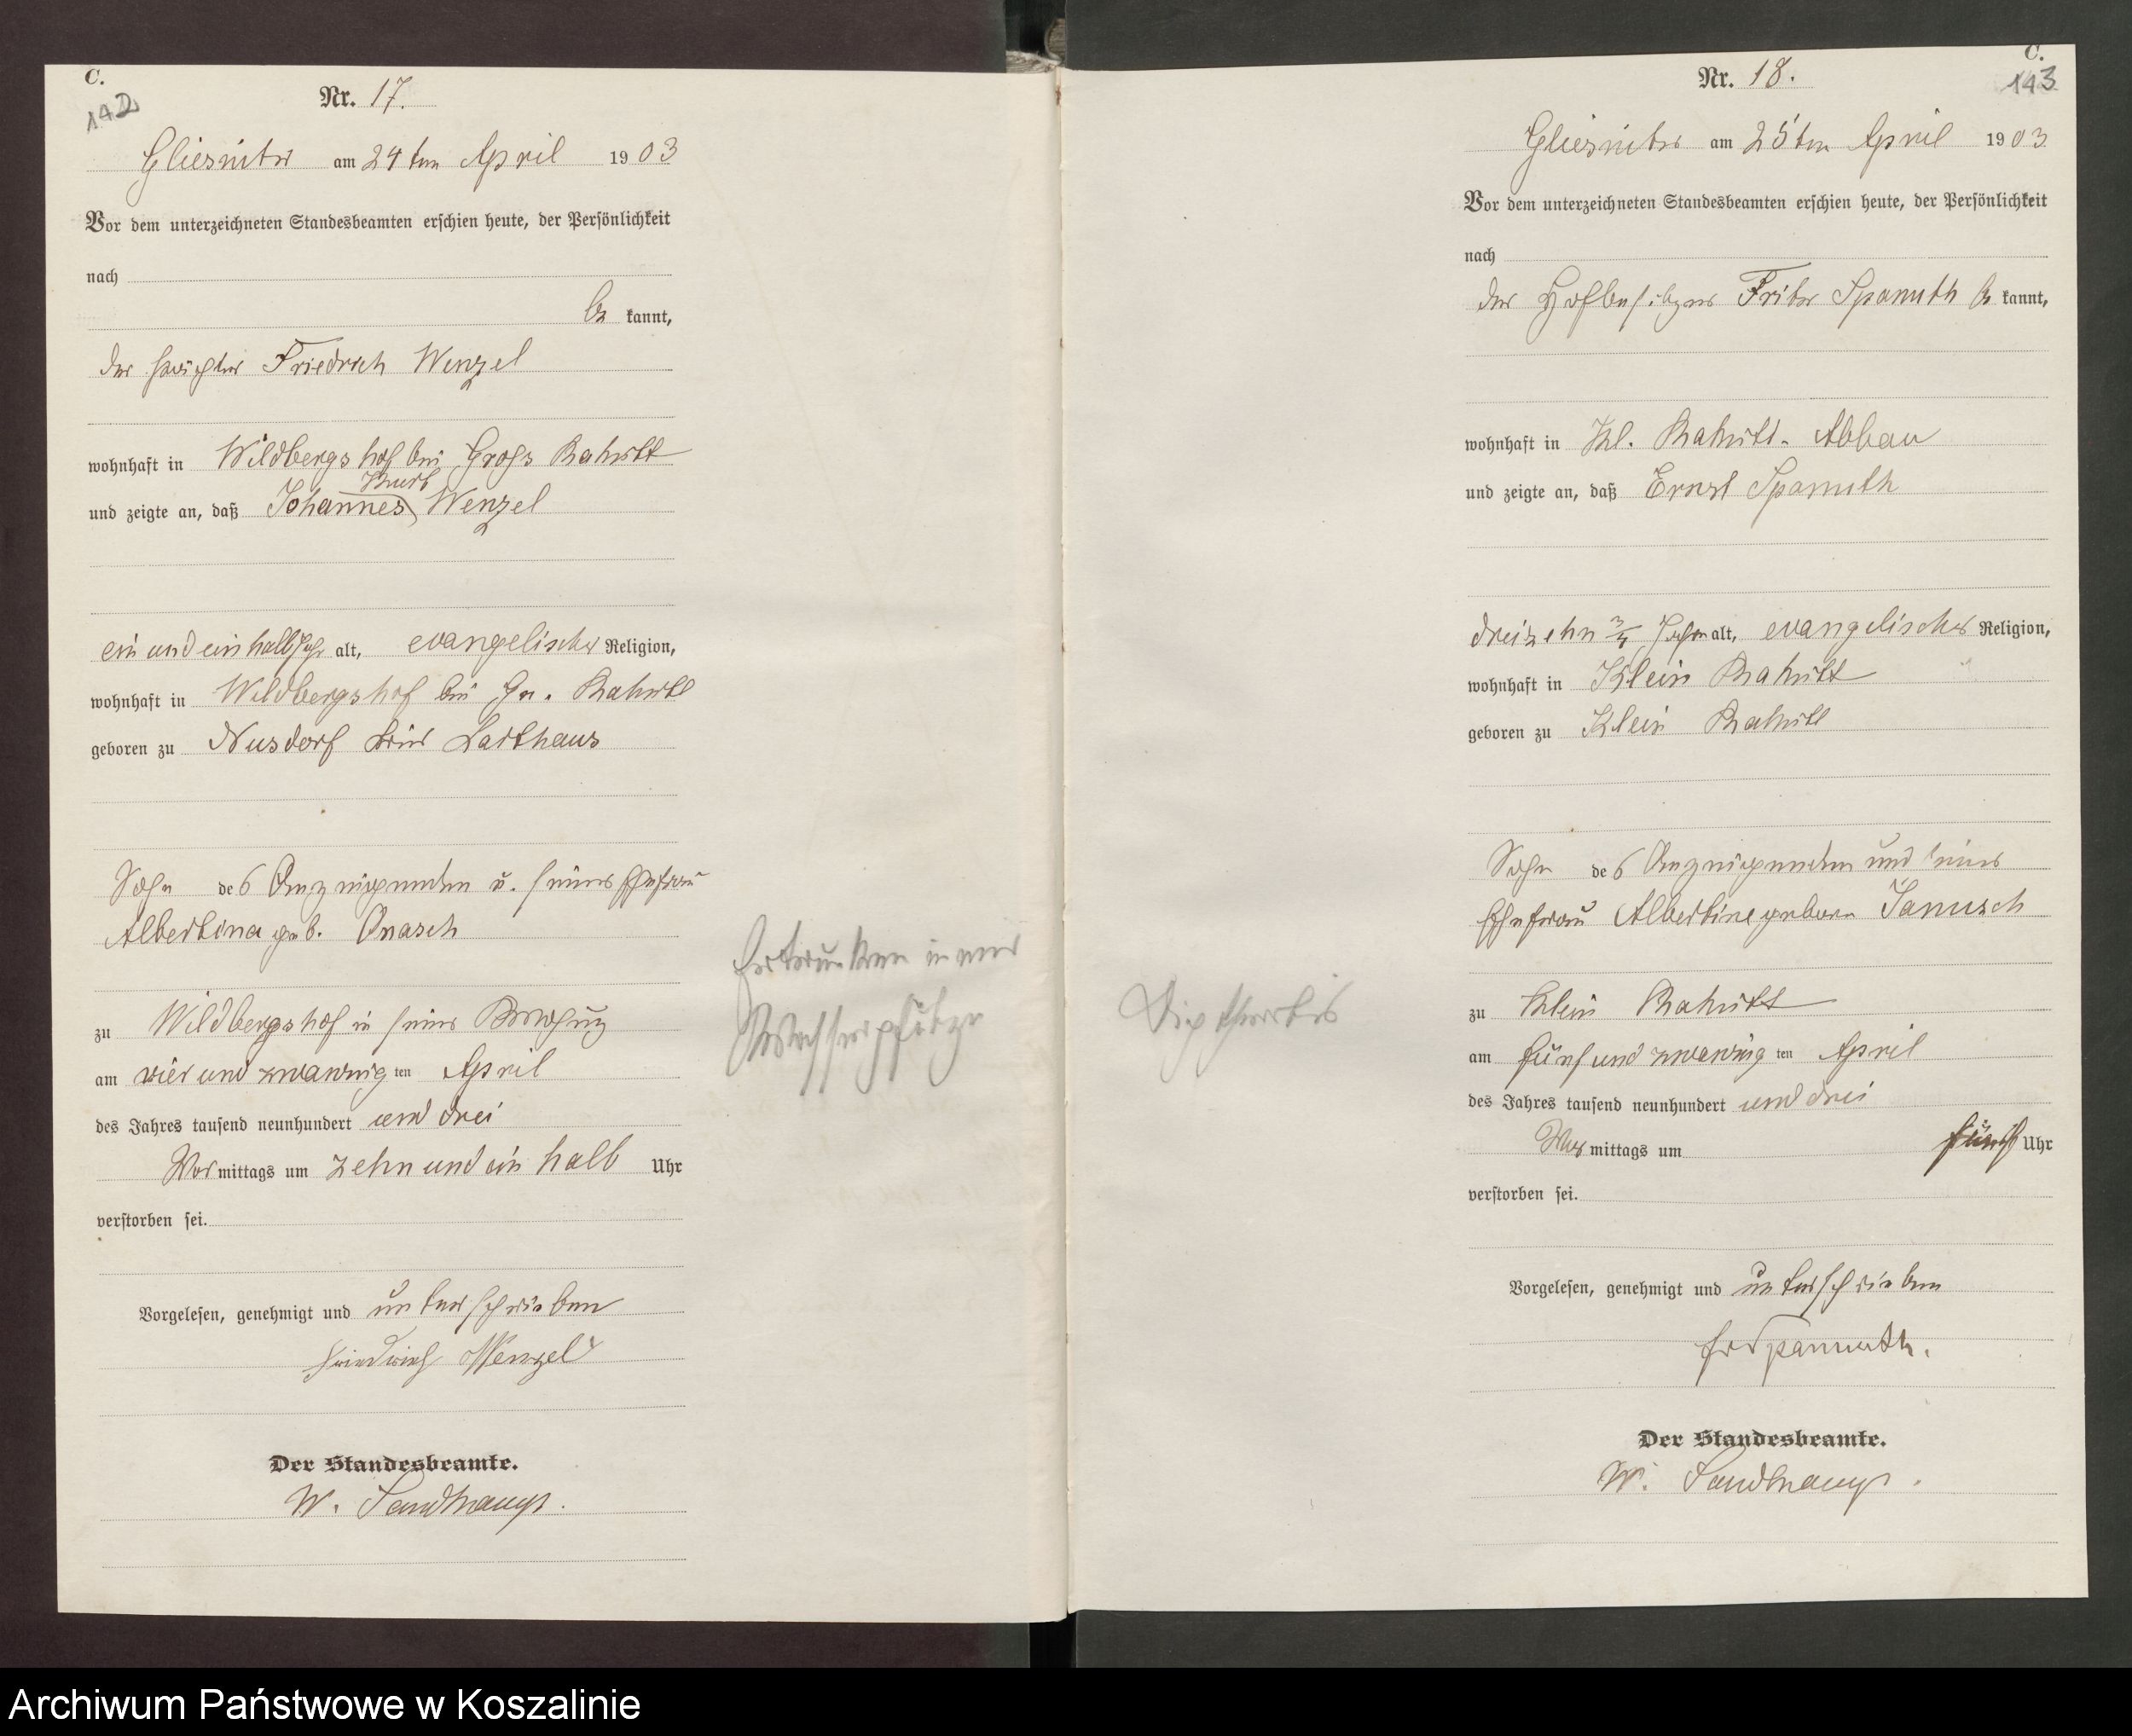 C.
142
Nr. 17.
Gliesnitz am 24ten April 1903
Vor dem unterzeichneten Standesbeamten erschien heute, der Persönlichkeit
nach
be kannt,
der Friedrich Wenzel
wohnhaft in Wildbergshof bei Gross Rakitt
Kurt
und zeigte an, daß Johannes Wenzel
ein und ein halb Jahr alt, evangelischer Religion,
wohnhaft in Wildbergshof bei Gr. Rakitt
geboren zu Nusdorf Kreis
Sohn des Anzeigenden u. seiner Ehefrau
Albertina geb. Onasch
zu Wildbergshof in seiner
am vier und zwanzig ten April
des Jahres tausend neunhundert und drei
Vor mittags um zehn und ein halb Uhr
verstorben sei.
Vorgelesen, genehmigt und unterschrieben
Friedrich Wenzel
Der Standesbeamte.
W. Sandkamp.
Ertrunken in einer
Wasserpfütze
C.
143
Nr. 18.
Gliesnitz am 25ten April 1903
Vor dem unterzeichneten Standesbeamten erschien heute, der Persönlichkeit
nach
der Hofbesitzer Fritz Spanuth be kannt,
wohnhaft in Kl. Rakitt-Abbau
und zeigte an, daß Ernst Spanuth
dreizehn 3/4 Jahre alt, evangelischer Religion,
wohnhaft in Klein Rakitt
geboren zu Klein Rakitt
Sohn des Anzeigenden und seiner
Ehefrau Albertine geboren Janusch
zu Klein Rakitt
am fünf und zwanzig ten April
des Jahres tausend neunhundert und drei
Vor mittags um fünf Uhr
verstorben sei.
Vorgelesen, genehmigt und unterschrieben
Fr Spanuth.
Der Standesbeamte.
W. Sandkamp.
Diptheritis
Archiwum Państwowe w Koszalinie